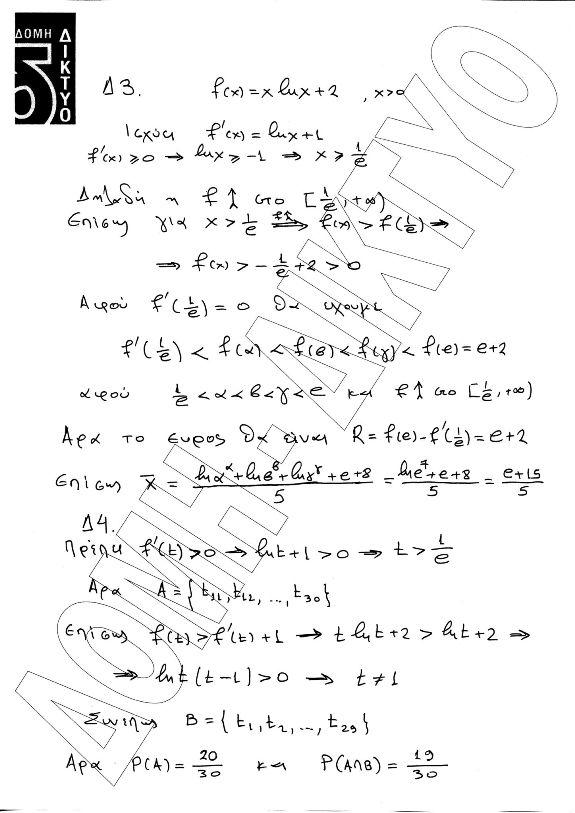 ΔΟΜΗ
ΔΙΚΤΥΟ
5
Δ3. f(x)=x lnx+2 , x>0
Ισχύει f'(x)=lnx+1
f'(x)≥0 → lnx≥-1 ⇒ x≥1/e
Δηλαδή η f↑ στο [1/e,+∞)
Επίσης για x>1/e f↑⇒ f(x)>f(1/e) ⇒
⇒ f(x)>-1/e+2>0
Αφού f'(1/e)=0 θα έχουμε
f'(1/e)<f(α)<f(β)<f(γ)<f(e)=e+2
αφού 1/e<α<β<γ<e και f↑ στο [1/e,+∞)
Άρα το εύρος θα είναι R=f(e)-f'(1/e)=e+2
Επίσης x̄ = (lnα^α+lnβ^β+lnγ^γ+e+8)/5 = (lne^7+e+8)/5 = (e+15)/5
Δ4.
Πρέπει f'(t)>0 → lnt+1>0 ⇒ t>1/e
Άρα A={t11,t12,...,t30}
Επίσης f(t)>f'(t)+1 → t lnt+2>lnt+2 ⇒
⇒ lnt(t-1)>0 → t≠1
Συνεπώς B={t1,t2,...,t29}
Άρα P(A)=20/30 και P(A∩B)=19/30
ΔΟΜΗ - ΔΙΚΤΥΟ